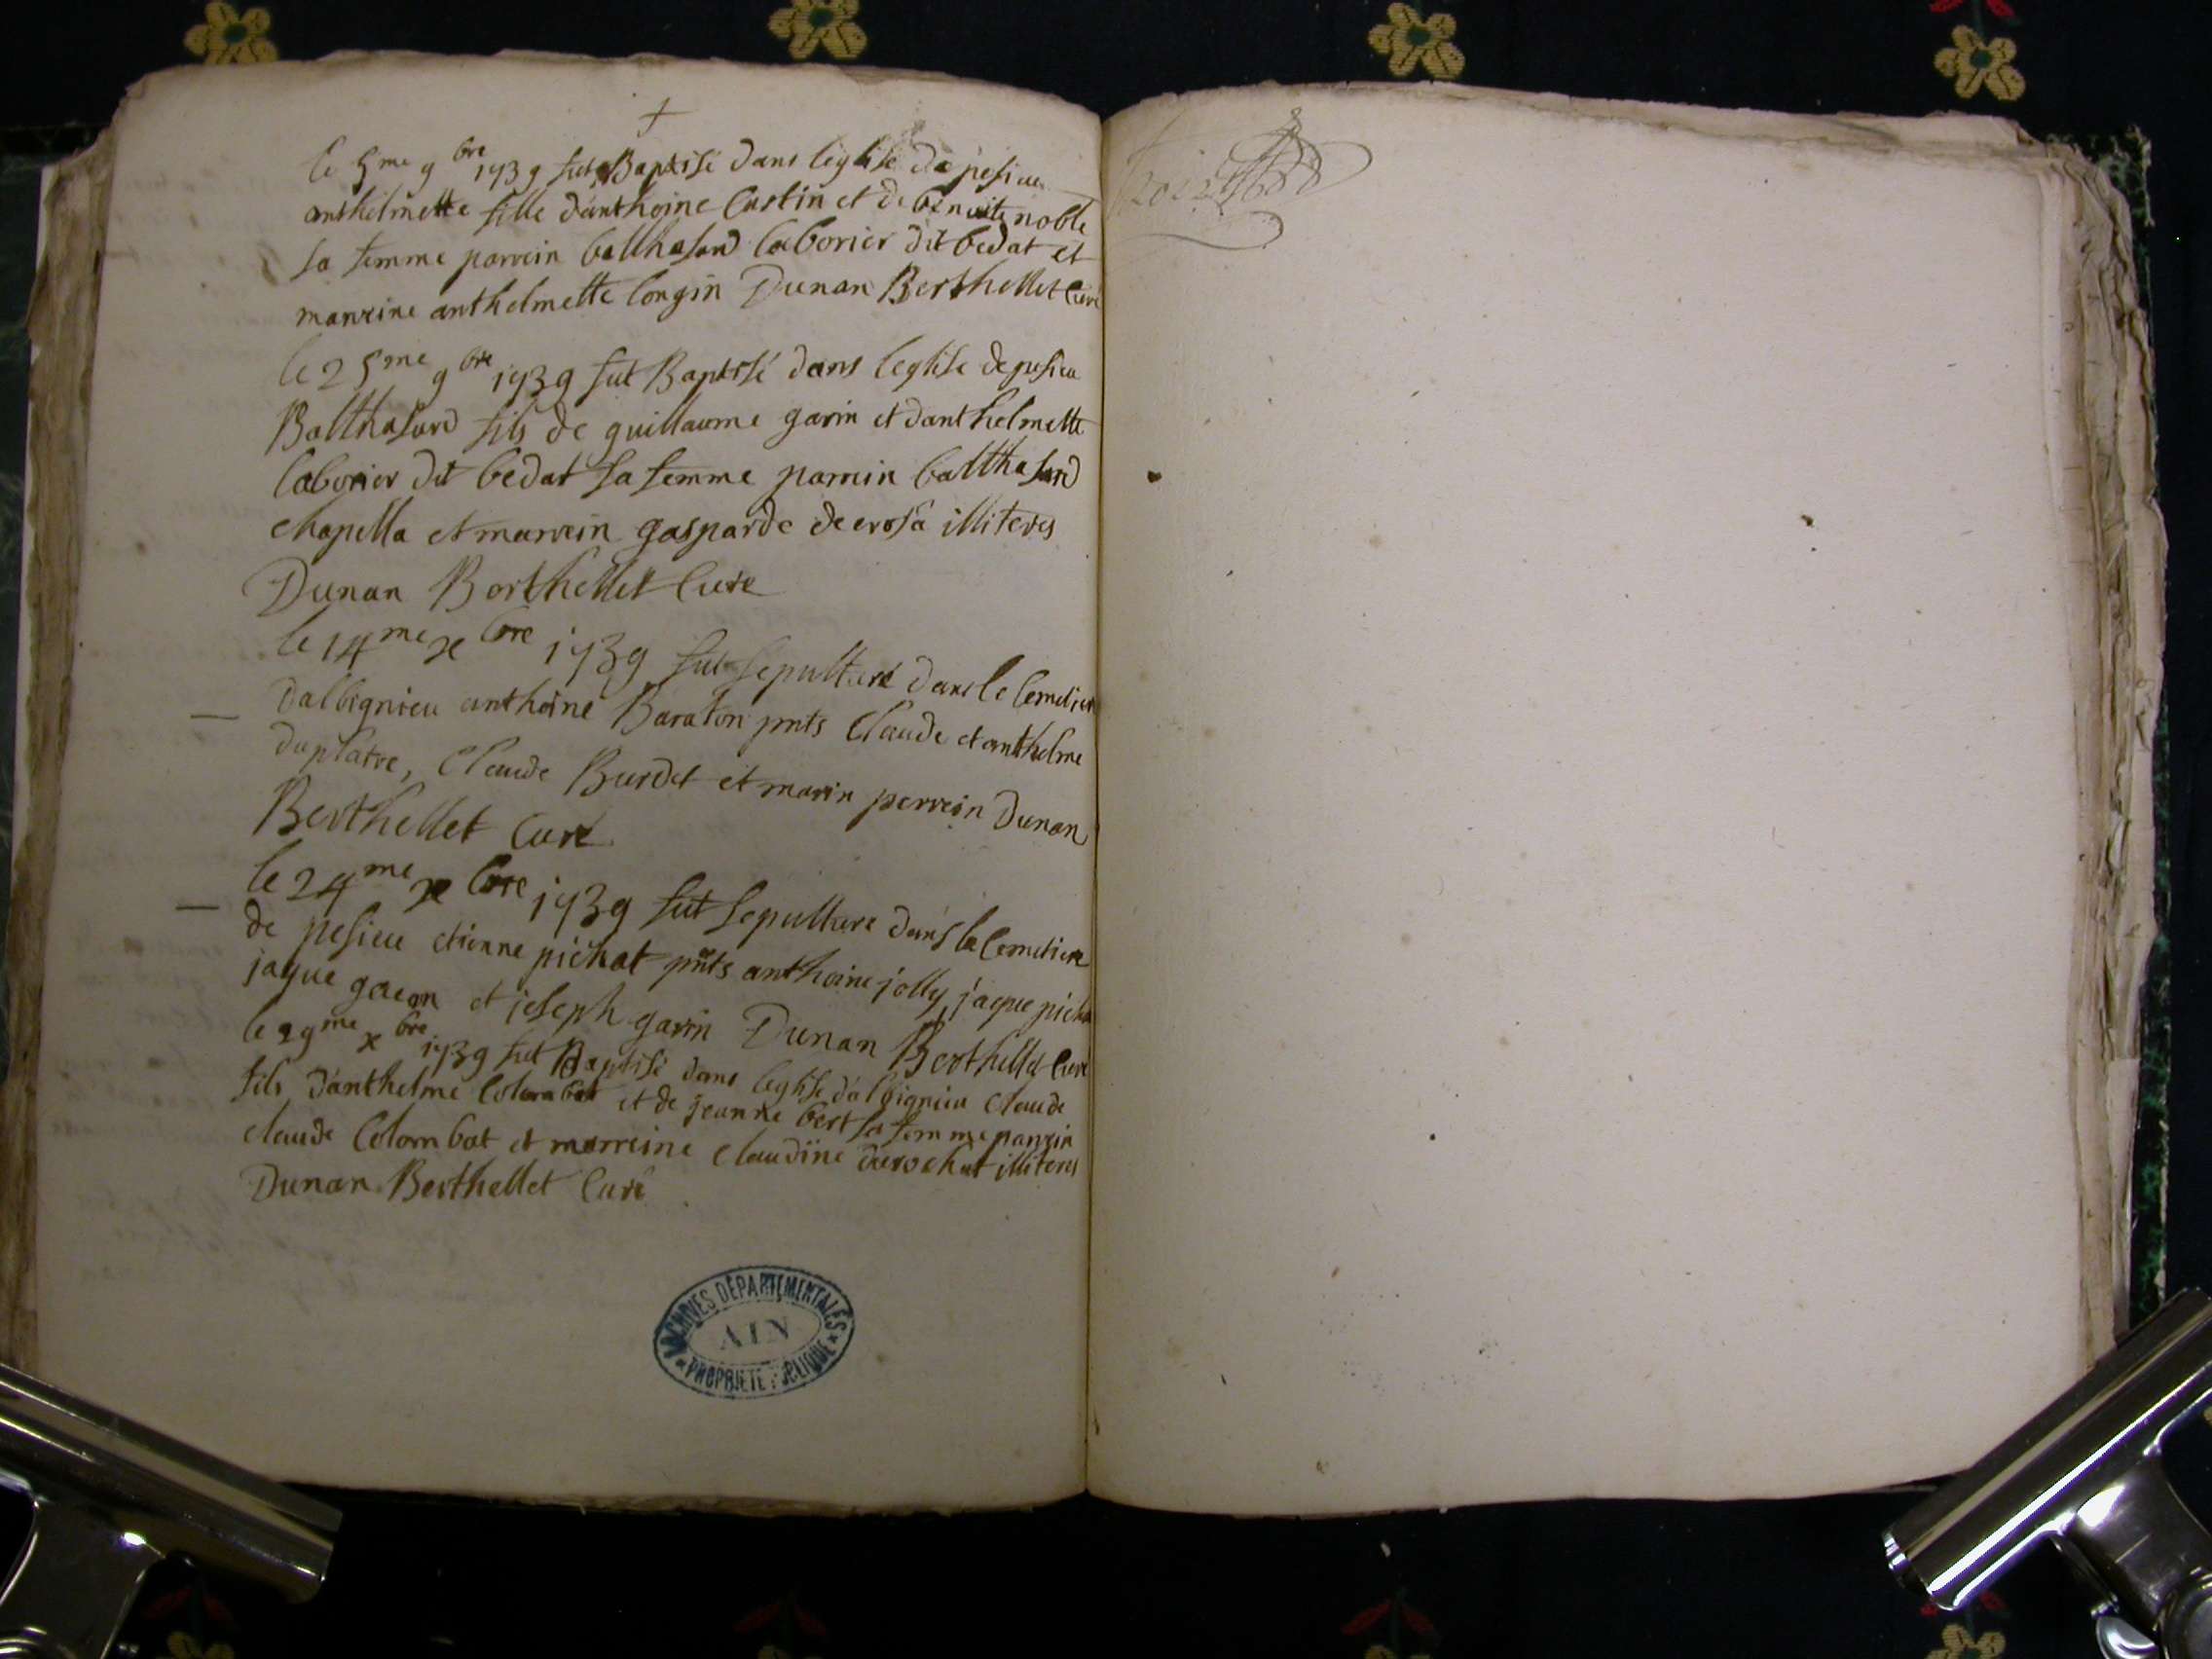 le 5me 9bre 1739 fut Baptisé dans leglise de pesieu
anthelmette fille d'anthoine Custin et de benoite noble
sa femme parrein balthasard laborier dit bedat et
marreine anthelmette longin Dunan Berthellet Curé
le 25me 9bre 1739 fut Baptisé dans leglise de pesieu
Balthasard fils de guillaume garin et danthelmette
laborier dit bedat sa femme parrein balthasard
chapella et marrein gasparde decrosa illiteres
Dunan Berthellet Curé
le 14me xbre 1739 fut sepulturé dans le Cemetiere
dalbignieu anthoine Baraton pnts Claude et anthelme
duplatre, Claude Burdet et marin perrein Dunan
Berthellet Curé
le 24me xbre 1739 fut sepulture dans le Cemetiere
de pesieu etienne pichat pnts anthoine jolly, jaque
jaque et joseph garin Dunan Berthellet Curé
le 29me xbre 1739 fut Baptisé dans leglise d'albignieu Claude
fils d'anthelme Colombat et de jeanne bert sa femme parrein
claude Colombat et marreine Claudine durochat illiteres
Dunan Berthellet Curé
ARCHIVES DÉPARTEMENTALES
AIN
PROPRIÉTÉ PUBLIQUE